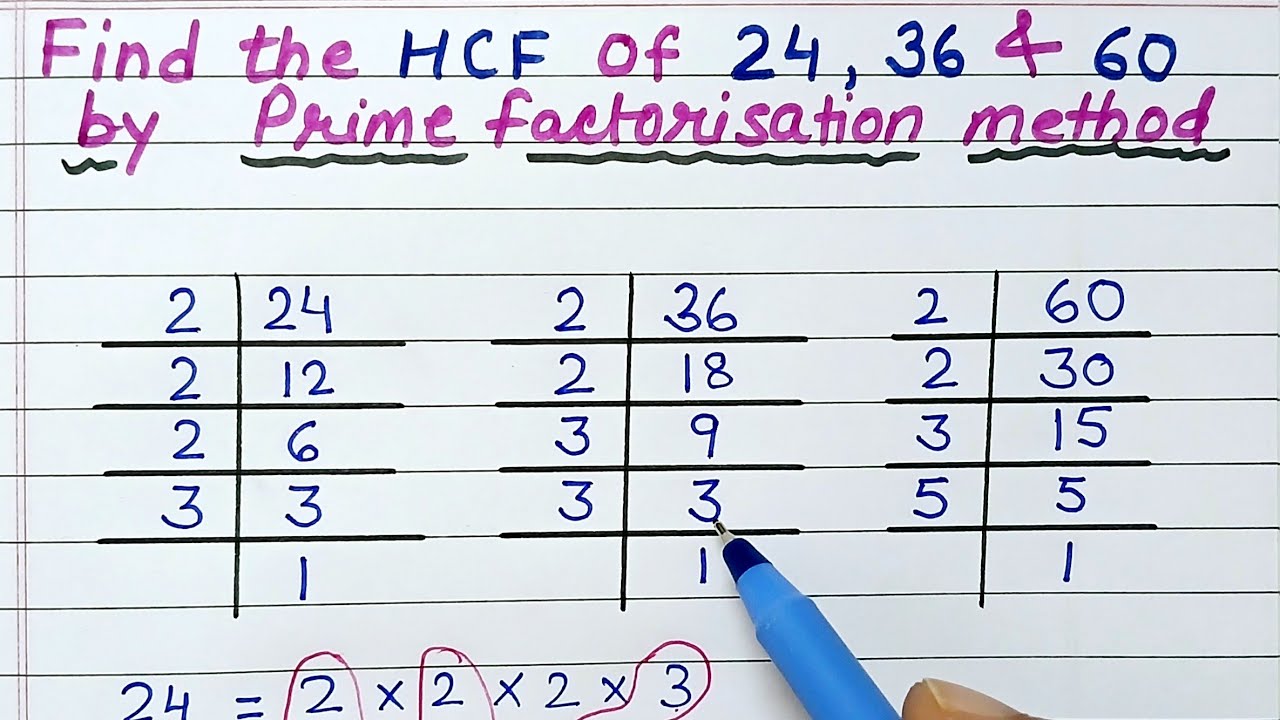 Find the HCF of 24, 36 & 60
by Prime factorisation method
2 24 2 36 2 60
2 12 2 18 2 30
2 6 3 9 3 15
3 3 3 3 5 5
1 1 1
24 = 2 × 2 × 2 × 3